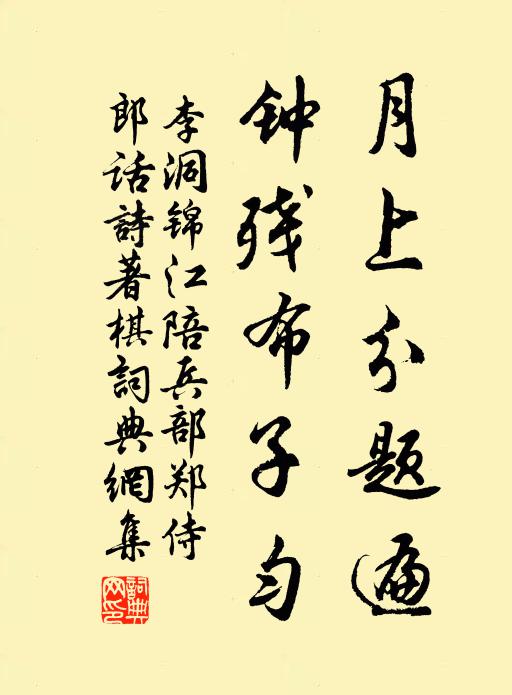 月上分题遍
钟残布子匀
李洞锦江陪兵部郑侍
郎话詩著棋詞典網集